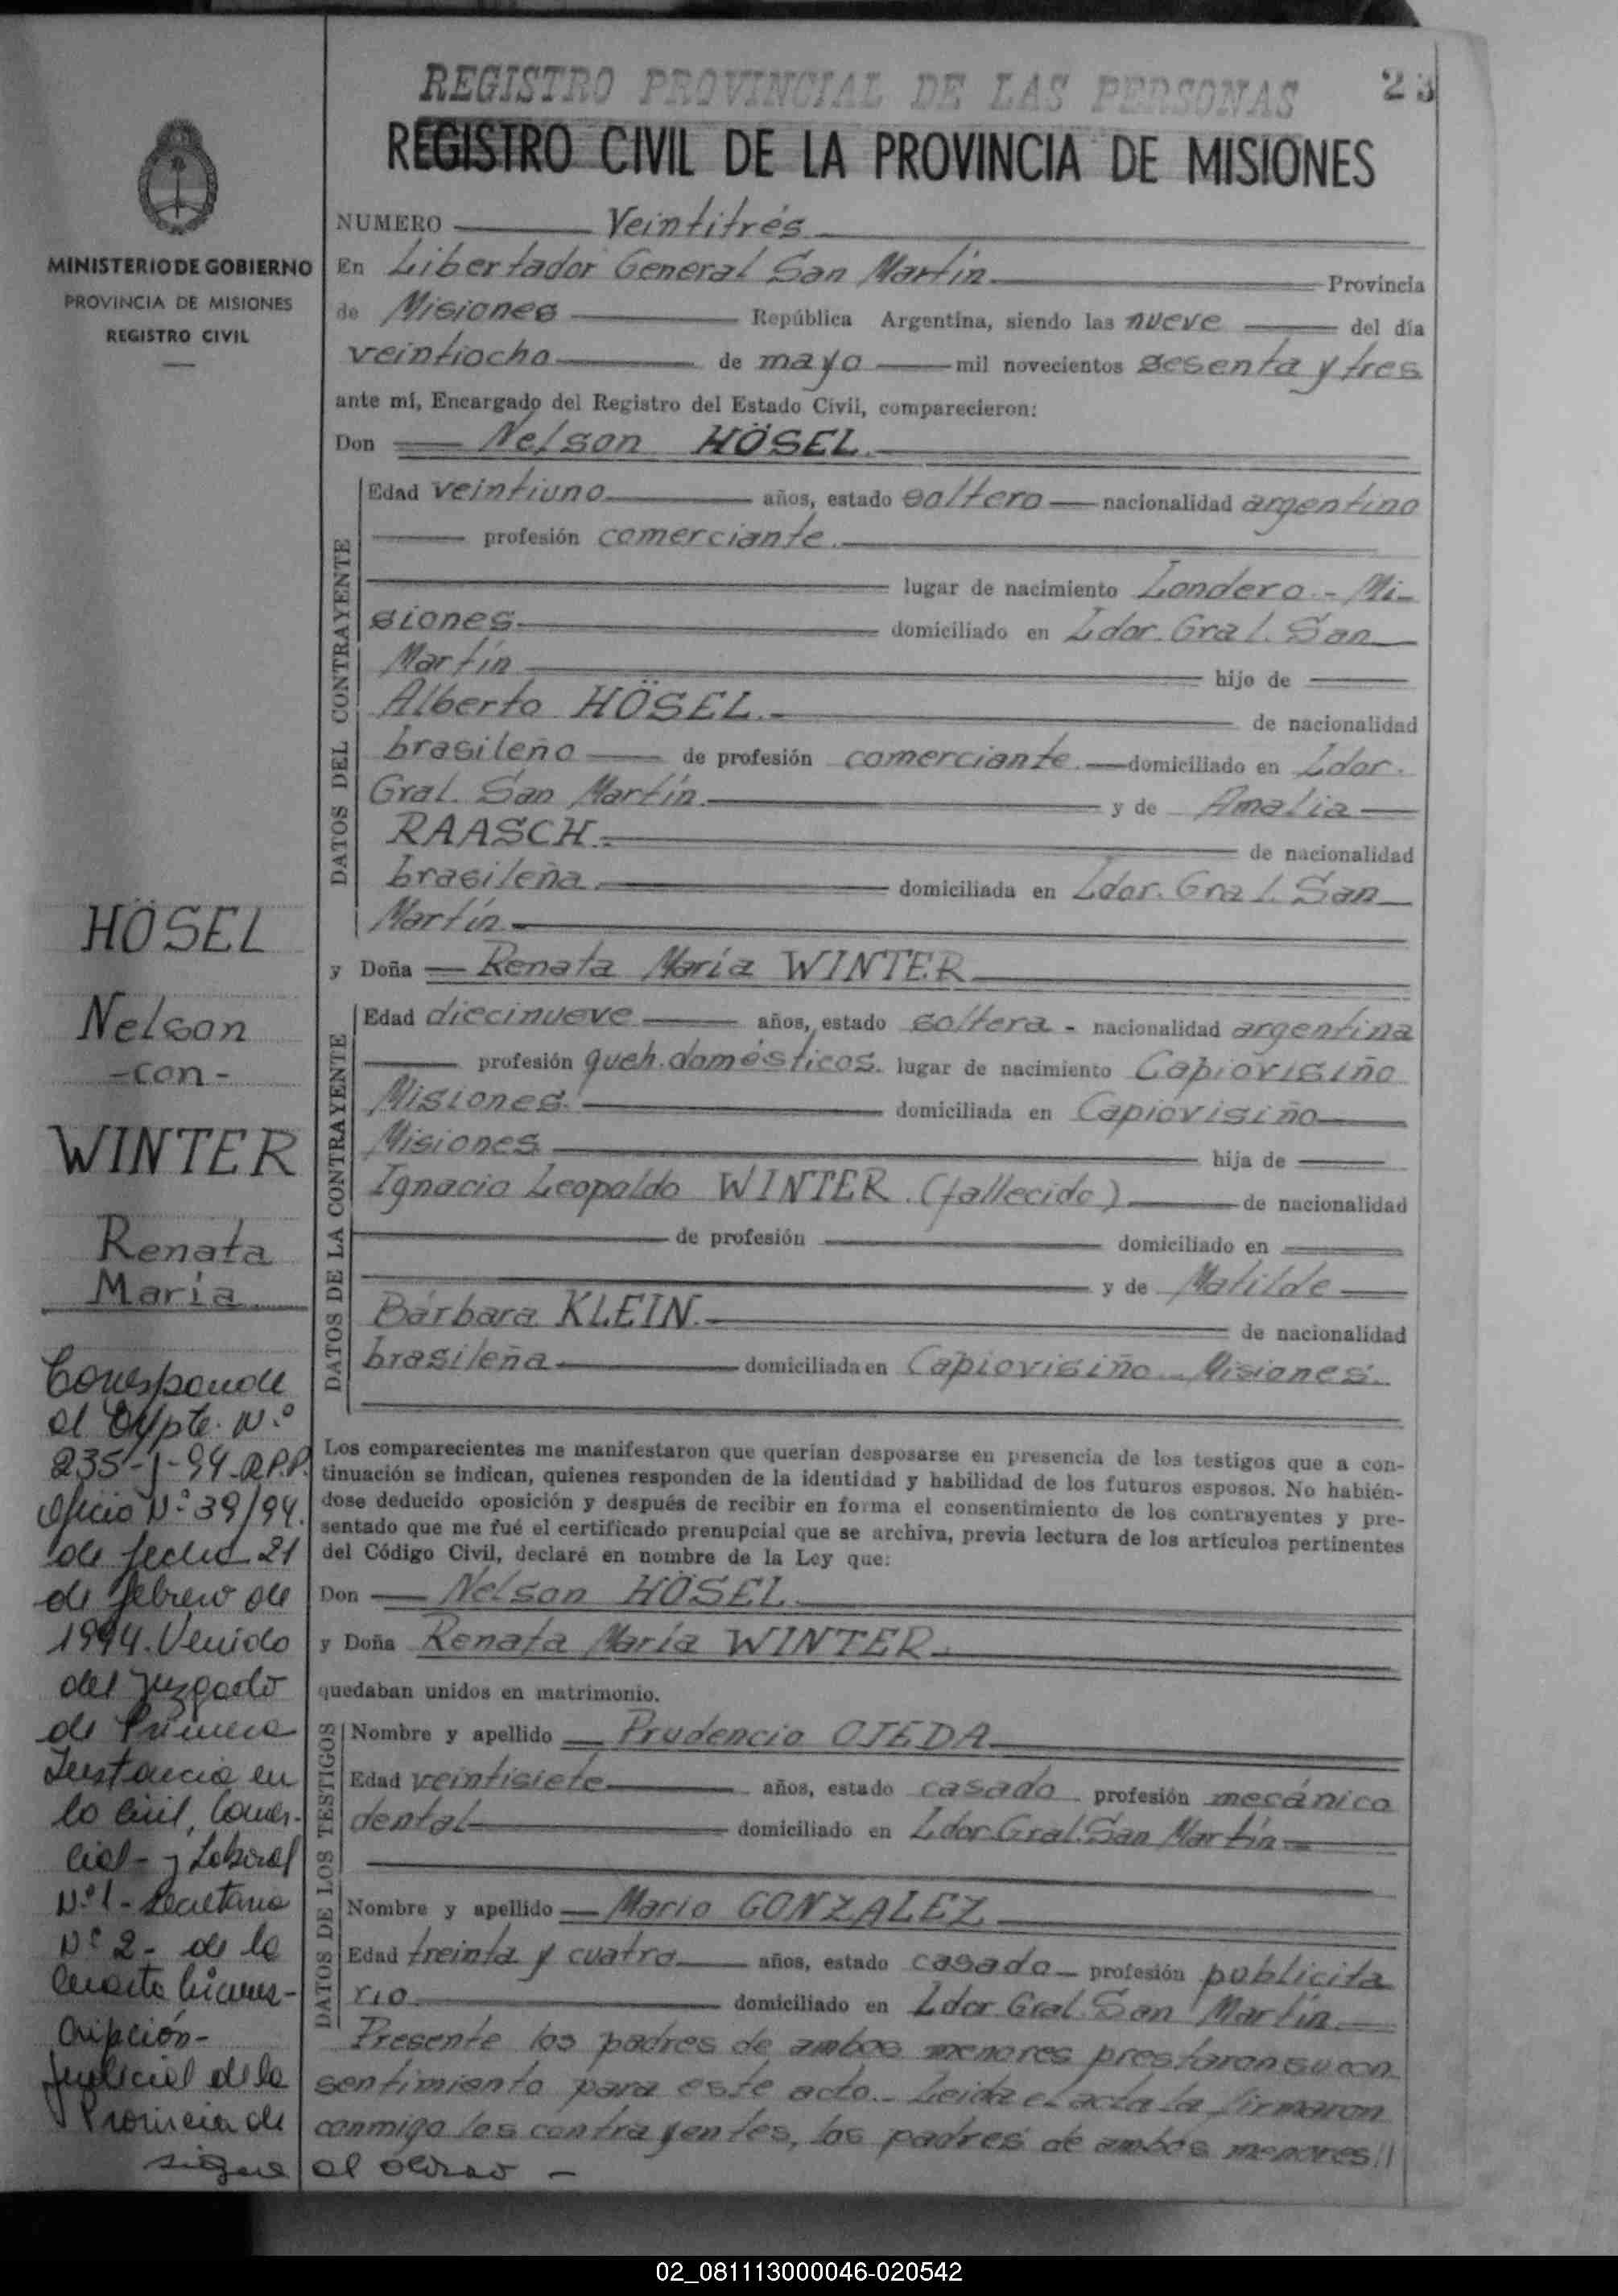 REGISTRO PROVINCIAL DE LAS PERSONAS 23
REGISTRO CIVIL DE LA PROVINCIA DE MISIONES
MINISTERIO DE GOBIERNO
PROVINCIA DE MISIONES
REGISTRO CIVIL
NUMERO Veintitrés
En Libertador General San Martín Provincia
de Misiones República Argentina, siendo las nueve del día
veintiocho de mayo mil novecientos sesenta y tres
ante mí, Encargado del Registro del Estado Civil, comparecieron:
Don Nelson HÖSEL.
DATOS DEL CONTRAYENTE
Edad veintiuno años, estado soltero nacionalidad argentino
profesión comerciante.
lugar de nacimiento Londero - Mi-
siones. domiciliado en Ldor. Gral. San
Martín hijo de
Alberto HÖSEL. de nacionalidad
brasileño de profesión comerciante. domiciliado en Ldor.
Gral. San Martín. y de Amalia
RAASCH. de nacionalidad
brasileña. domiciliada en Ldor. Gral. San
Martín
y Doña Renata María WINTER
DATOS DE LA CONTRAYENTE
Edad diecinueve años, estado soltera - nacionalidad argentina
profesión queh. domésticos. lugar de nacimiento Capiovisiño
Misiones. domiciliada en Capiovisiño
Misiones hija de
Ignacio Leopoldo WINTER. (fallecido) de nacionalidad
de profesión domiciliado en
y de Matilde
Bárbara KLEIN. de nacionalidad
brasileña domiciliada en Capiovisiño - Misiones.
Los comparecientes me manifestaron que querían desposarse en presencia de los testigos que a con-
tinuación se indican, quienes responden de la identidad y habilidad de los futuros esposos. No habién-
dose deducido oposición y después de recibir en forma el consentimiento de los contrayentes y pre-
sentado que me fué el certificado prenupcial que se archiva, previa lectura de los artículos pertinentes
del Código Civil, declaré en nombre de la Ley que:
Don Nelson HÖSEL
y Doña Renata María WINTER.
quedaban unidos en matrimonio.
DATOS DE LOS TESTIGOS
Nombre y apellido Prudencio OJEDA
Edad veintisiete años, estado casado profesión mecánico
dental domiciliado en Ldor. Gral. San Martín
Nombre y apellido Mario GONZALEZ
Edad treinta y cuatro años, estado casado profesión publicita
rio domiciliado en Ldor. Gral. San Martín.
Presente los padres de ambos menores prestaron su con
sentimiento para este acto. - Leida el acta la firmaron
conmigo los contrayentes, los padres de ambos menores//
HÖSEL
Nelson
-con-
WINTER
Renata
María
Corresponde
al Expte. N.º
235-J-94-R.P.P.
Oficio N.º 39/94.
de fecha 21
de febrero de
1994. Venido
del Juzgado
de Primera
Instancia en
lo Civil, Comer-
cial - y Laboral
N.º 1 - Secretaria
N.º 2 - de la
Cuarta Circuns-
cripción -
Judicial de la
Provincia de
sigue al dorso -
02_081113000046-020542